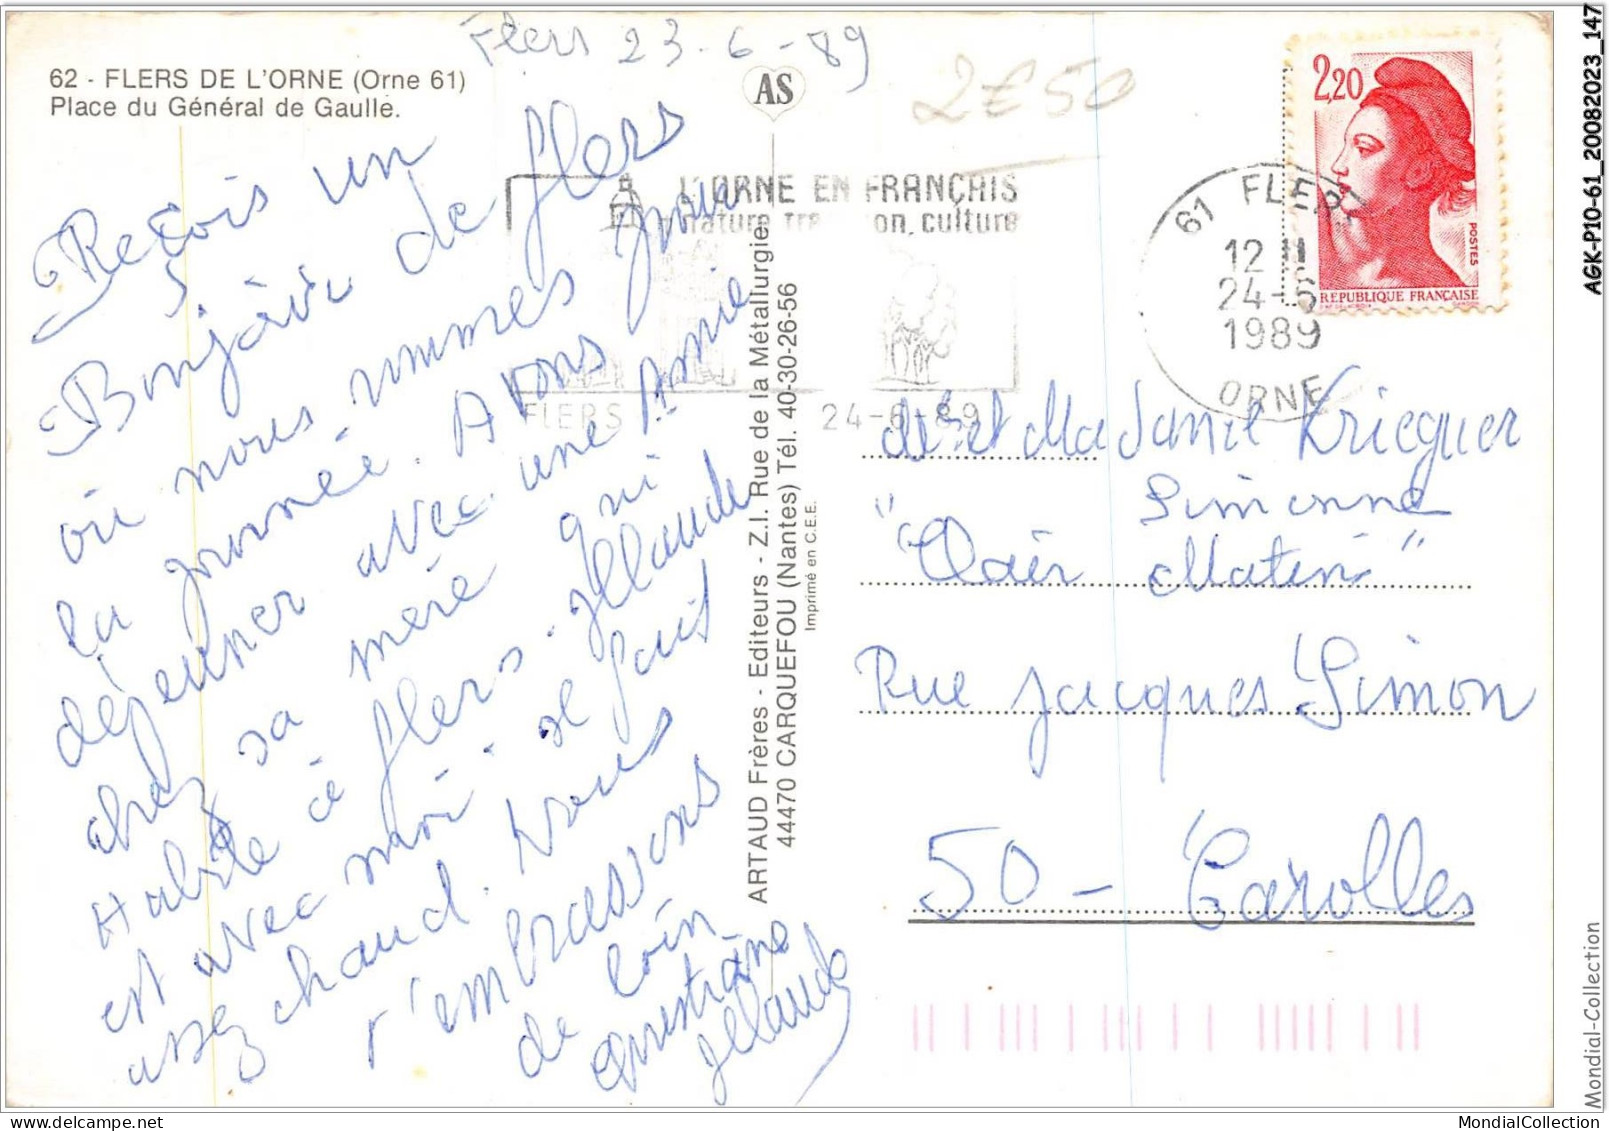 Flers 23-6-89
2€50
62 - FLERS DE L'ORNE (Orne 61)
Place du Général de Gaulle.
AS
Reçois un
Bonjour de flers
où nous sommes pour
la journée. Avons
déjeuner avec une Amie
chez sa mère qui
Habite à flers.
est avec moi. il fait
assez chaud. Nous
t'embrassons
de loin
L'ORNE EN FRANÇAIS
nature, tradition, culture
FLERS 24-6-89
61 FLERS
12 H
24-6
1989
ORNE
2,20
POSTES
REPUBLIQUE FRANÇAISE
ARTAUD Frères - Editeurs - Z.I. Rue de la Métallurgie
44470 CARQUEFOU (Nantes) Tél. 40-30-26-56
Imprimé en C.E.E.
et Madame Kriequer
Simonne
"Clair Matin"
Rue Jacques Simon
50 - Carolles
AGK-P10-61_20082023_147
Mondial-Collection
MondialCollection